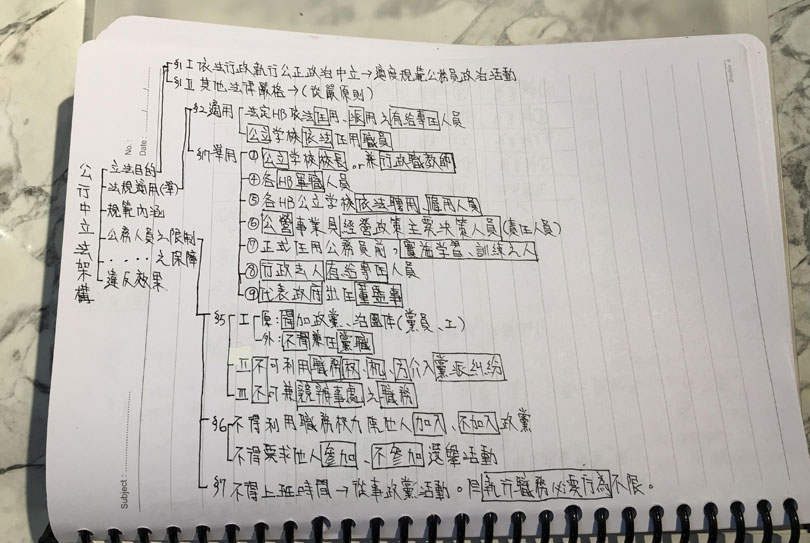 §1 I 依法行政執行公正政治中立→適度規範公務員政治活動
§1 II 其他法律嚴格→(從嚴原則)
§2適用
法定HB依法任用、派用之有給專任人員
公立學校依法任用職員
§17準用
①公立學校校長or兼行政職教師
④各HB軍職人員
⑤各HB公立學校依法聘用、僱用人員
⑥公營事業具經營政策主要決策人員(責任人員)
⑦正式任用公務員前,實治學習、訓練之人
⑧行政法人有給專任人員
⑨代表政府出任董監事
公行中立法架構
立法目的
法規適用(準)
規範內涵
公務人員之限制
‥‥‥之保障
違反效果
§5
I
原:加政黨、治團体(黨員、工)
外:不得兼任黨職
II 不可利用職務權、機、介入黨派糾紛
III 不可兼競辦事處之職務
§6不得利用職務權力使他人加入、不加入政黨
不得要求他人參加、不參加選舉活動
§7 不得上班時間→從事政黨活動。但執行職務必要行為不限。
No.:
Date:
Subject: